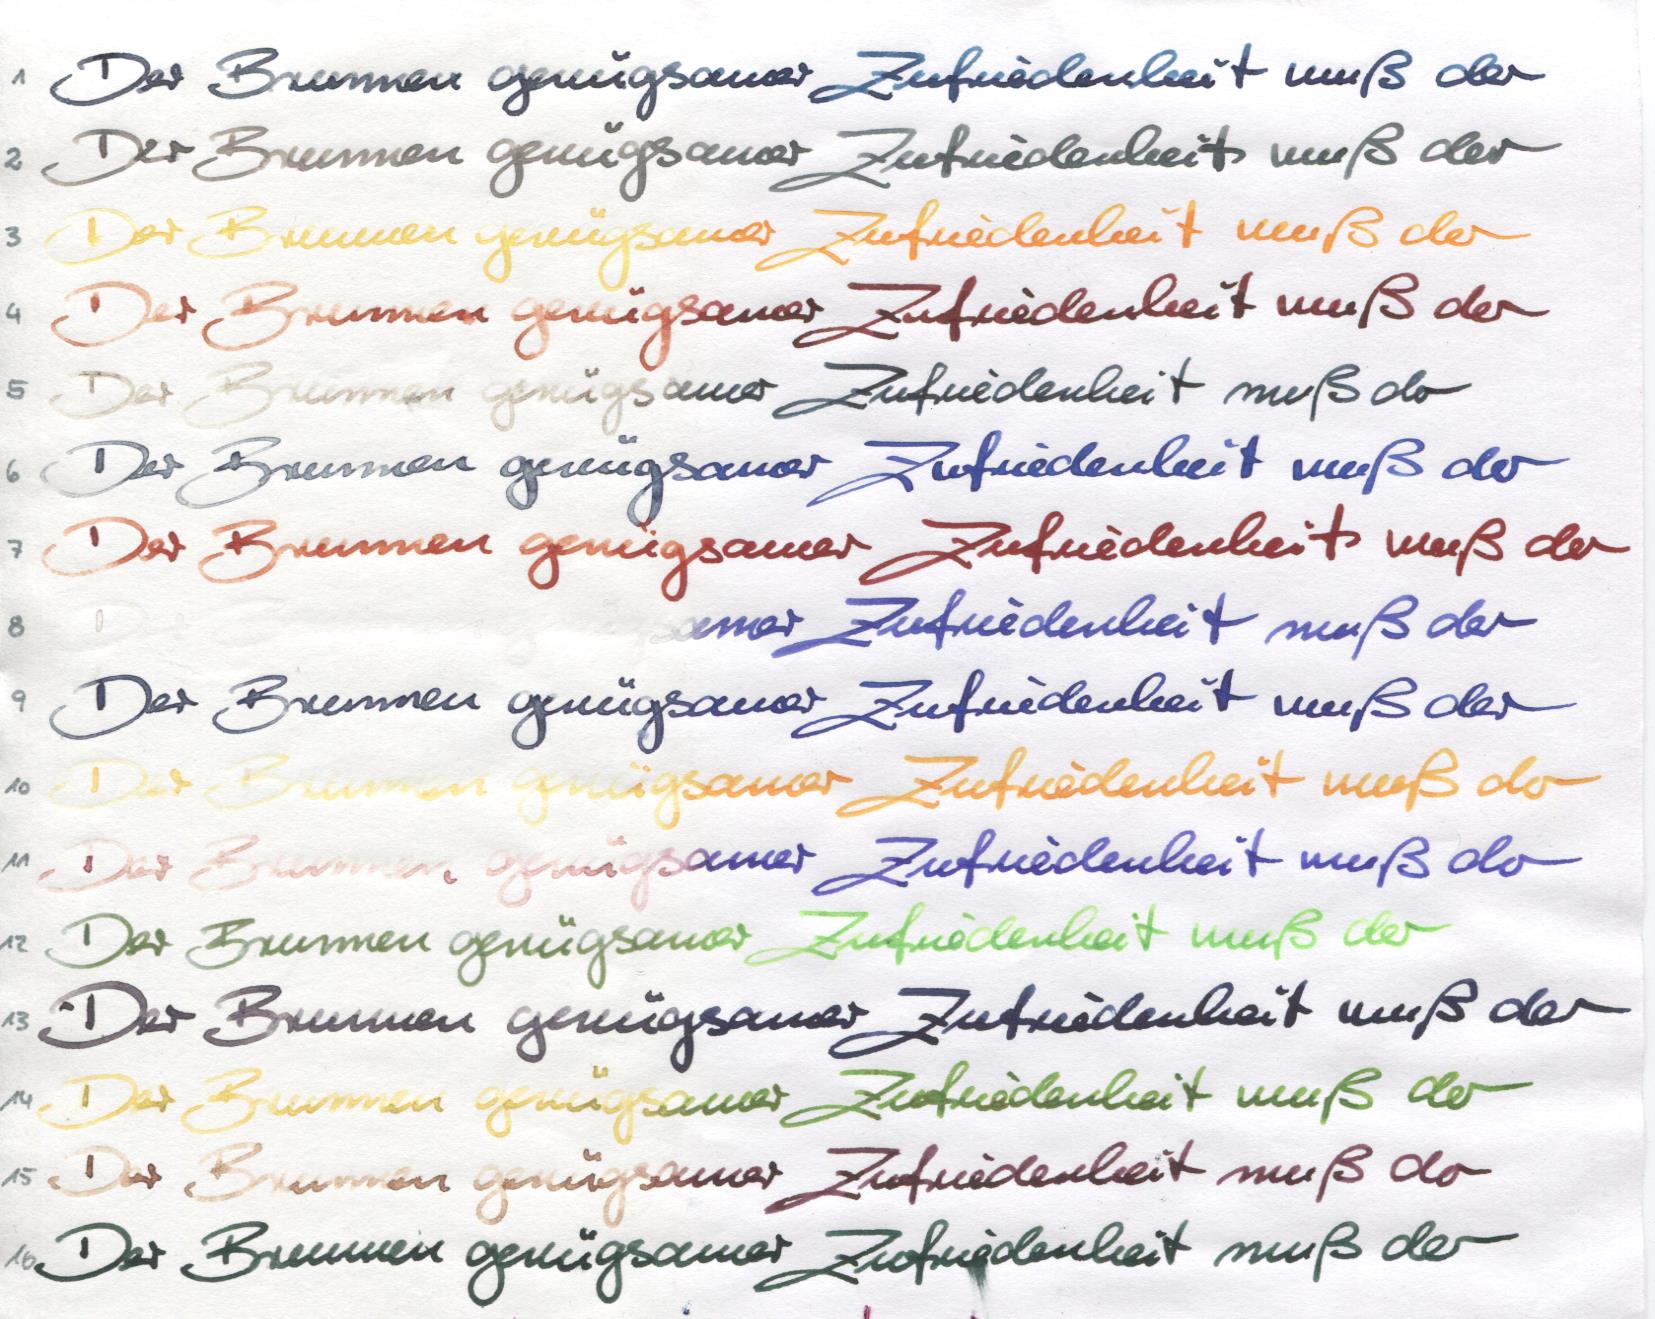 1 Der Brunnen genügsamer Zufriedenheit muß der
2 Der Brunnen genügsamer Zufriedenheit muß der
3 Der Brunnen genügsamer Zufriedenheit muß der
4 Der Brunnen genügsamer Zufriedenheit muß der
5 Der Brunnen genügsamer Zufriedenheit muß der
6 Der Brunnen genügsamer Zufriedenheit muß der
7 Der Brunnen genügsamer Zufriedenheit muß der
8 samer Zufriedenheit muß der
9 Der Brunnen genügsamer Zufriedenheit muß der
10 Der Brunnen genügsamer Zufriedenheit muß der
11 Der Brunnen genügsamer Zufriedenheit muß der
12 Der Brunnen genügsamer Zufriedenheit muß der
13 Der Brunnen genügsamer Zufriedenheit muß der
14 Der Brunnen genügsamer Zufriedenheit muß der
15 Der Brunnen genügsamer Zufriedenheit muß der
16 Der Brunnen genügsamer Zufriedenheit muß der